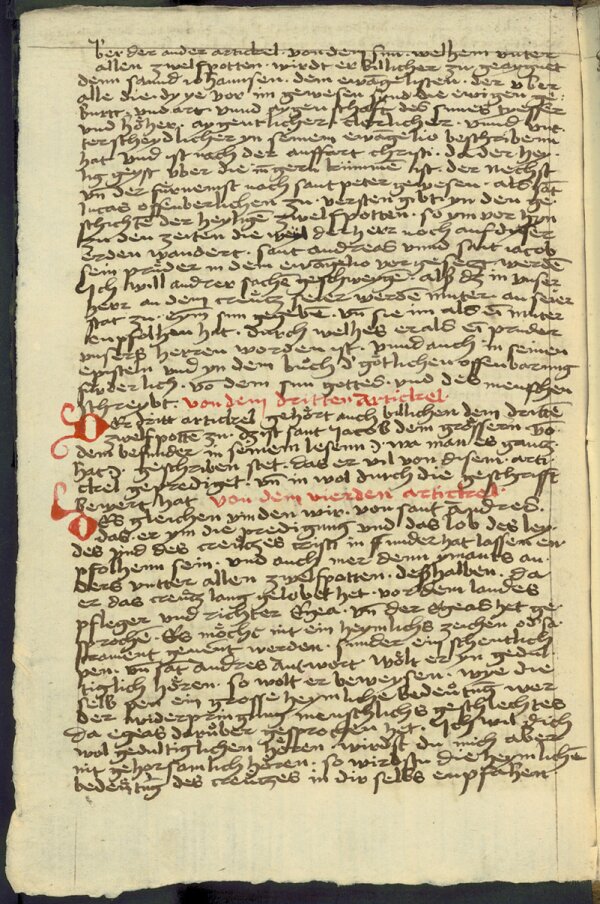 ber der ander artickel · von dem sun · welhem vnter
allen zwelfpotten · wirdt er billicher zu geaygnet
denn sannd iohannsen · dem ewāgelisten · der vber
alle die · dy ye vor im gewesen synd · die ewigen ge¬
burtt · vnd art · vnnd aygenschaft des sunes pesser
vnd höher · aygentlicher · klerlicher · vnnd vnt¬
terschydlicher yn seinem ewāgelio beschribenn
hat · vnd ist nach der auffart christi · da der hey¬
lig geyst vber die iungern kūmmen ist · der nechst
vn̄ der fürnemist nach sant peter gewesen · als sant
lucas offenberlichen zu versten gibt · yn den ge¬
schichte der heylige zwelfpotten · so ym vor hyn
zu den zeiten die weyl der herr noch auf diser
erden wandert · sant andreas vnnd sant iacob
sein prüder in dem ewāgelio vor gesetzt werdē
Ich will andrer sache geschweyge · alß dz in vnser
herr an dem creütz seiner werden muter · an seiner
stat zu eym sun gegebē · vn̄ sie im als eī muter
enpfolhen hat · durch welhes er als eī pruder
vnsers herren worden ist · vnnd auch in seinen
episteln vnd yn dem büch d' götlichen offenbarung
sunderlich · vō dem sun gottes · vnd des menschen
schreybt · von dem dritten artickel ·
Der dritt artickel gehört auch billichen dem drittē
zwelfpotte zu · dz ist sant iacob dem grössern vō
dem besunder in seinem lesenn · wa man es gantz
hat · geschriben stet · das er vil von disem · arti¬
ckel geprediget · vn̄ in wol durch die geschrifft
bewert hat · von dem vierden artickel ·
Des gleichen vinden wir · von sant andres ·
das · er ym die predigung vnd das lob des ley¬
des vnd des creützes cristi in sunder hat lassen en
pfolhenn sein · vnd auch mer denn ymants an¬
ders vntter allen zwelfpotten · deßhalben · da
er das creütz lang gelobet het · vor dem landes
pfleger vnd richter Egea · vn̄ der egeas het ge¬
sproche · Es möcht nit ein heymlichs zeichen od' sa¬
crament genent werden · sunder ein schentlich
pen · vn̄ sāt andres antwort · wölt er yn gedu¬
ltiglich hören · so wolt er beweysen · wye die
selb pen ein grosse heymliche bedeütūg wer
der widerpringung menschlichs geschlechtes
Da egeas darüber gesprochen het · Ich wil dich
wol gedultiglichen hören · wirdst du mich aber
nit gehorsamlich hören · so wirdstu die heymlichē
bedeütūg des creützes in dir selbs enpfahen